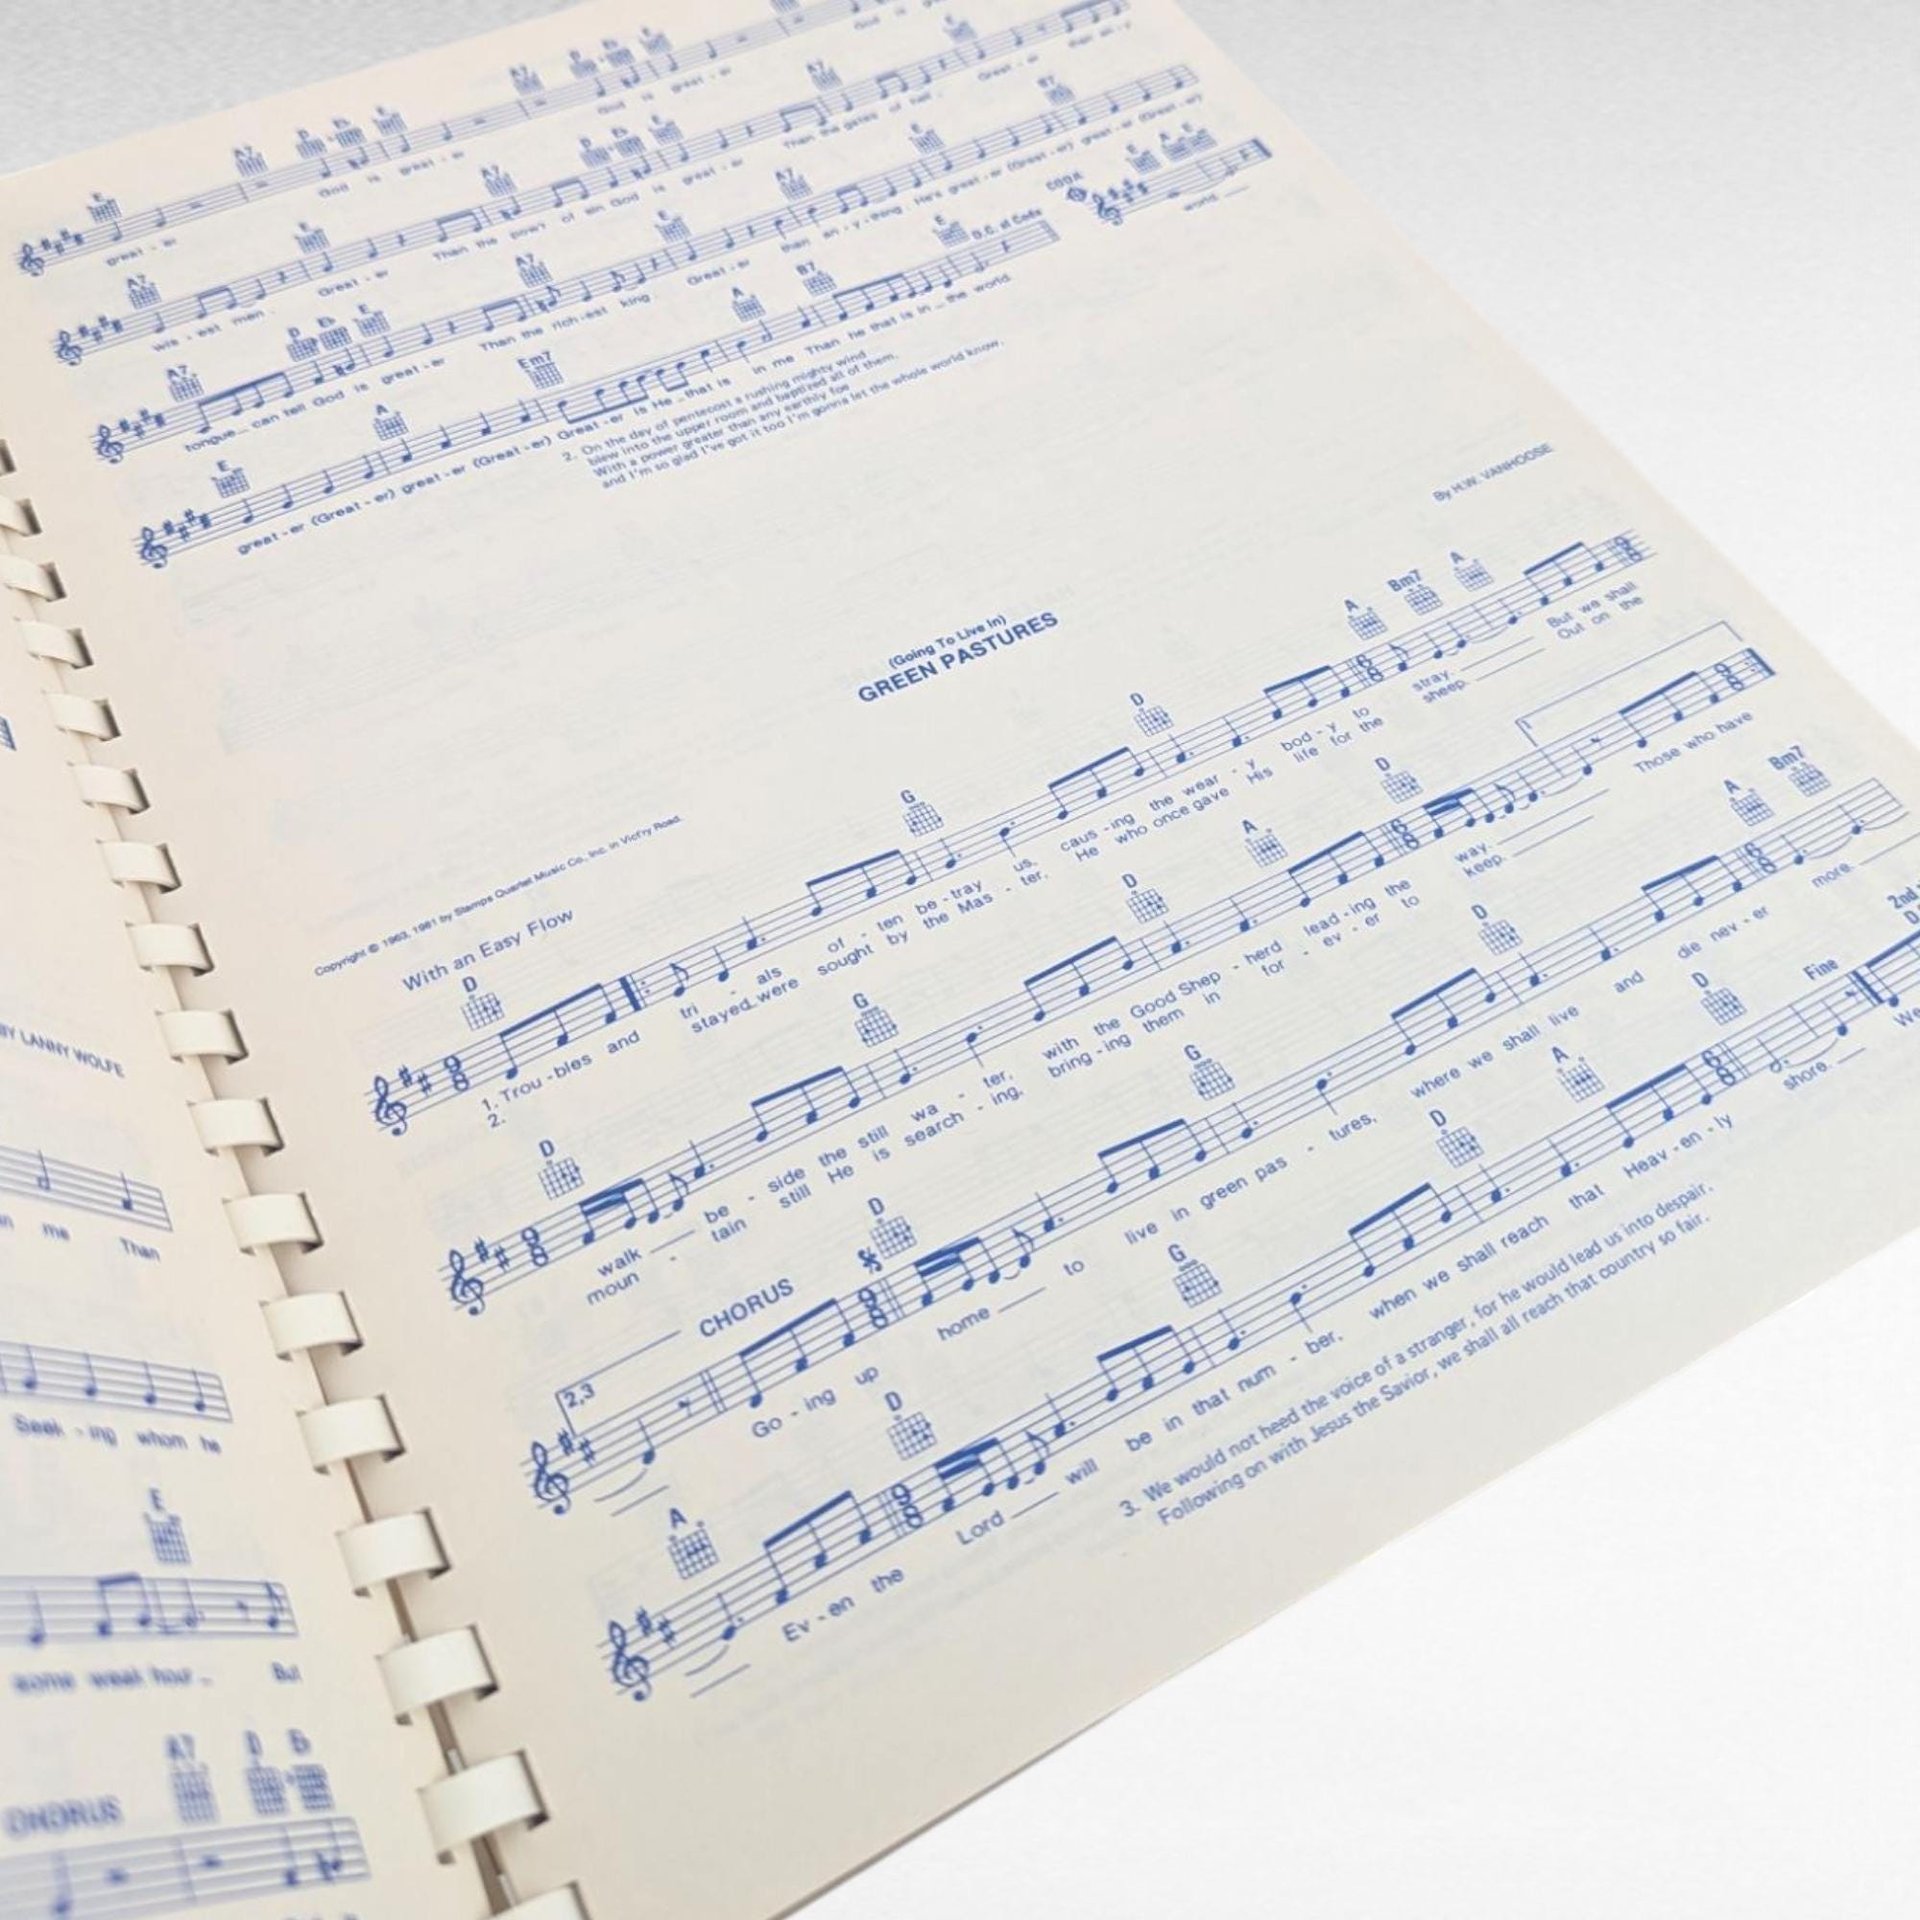 God is
E A7 D Eb E A7 D Eb E
great - er God is great - er God is great - er
A7 E A7 D Eb E A7 E
wis - est men. Great - er Than the pow'r of sin God is great - er Than the gates of hell. Great - er than an - y
A7 D Eb E A7 E A7 E B7
tongue can tell God is great - er Than the rich - est king Great - er than an - y - thing He's great - er (Great - er) great - er (Great - er)
E A Em7 A B7 E D.C. al Coda CODA E A E
great - er (Great - er) great - er (Great - er) Great - er is He that is in me Than he that is in the world. world.
2. On the day of pentecost a rushing mighty wind
blew into the upper room and baptized all of them,
With a power greater than any earthly foe
and I'm so glad I've got it too I'm gonna let the whole world know.
By H.W. VANHOOSE
(Going To Live In)
GREEN PASTURES
Copyright © 1963, 1981 by Stamps Quartet Music Co., Inc. in Vict'ry Road.
With an Easy Flow
D G D A Bm7 A
1. Trou - bles and tri - als of - ten be - tray us, caus - ing the wear - y bod - y to stray. But we shall
2. stayed were sought by the Mas - ter, He who once gave His life for the sheep. Out on the
D G D A D 1.
walk be - side the still wa - ter, with the Good Shep - herd lead - ing the way. Those who have
moun - tain still He is search - ing, bring - ing them in for - ev - er to keep.
2,3 CHORUS D G D A Bm7
Go - ing up home to live in green pas - tures, where we shall live and die nev - er more.
A D G D A D Fine 2nd
Ev - en the Lord will be in that num - ber, when we shall reach that Heav - en - ly shore. We
3. We would not heed the voice of a stranger, for he would lead us into despair.
Following on with Jesus the Savior, we shall all reach that country so fair.
BY LANNY WOLFE
me Than
Seek - ing whom he
E
some weak hour But
CHORUS A7 D Eb